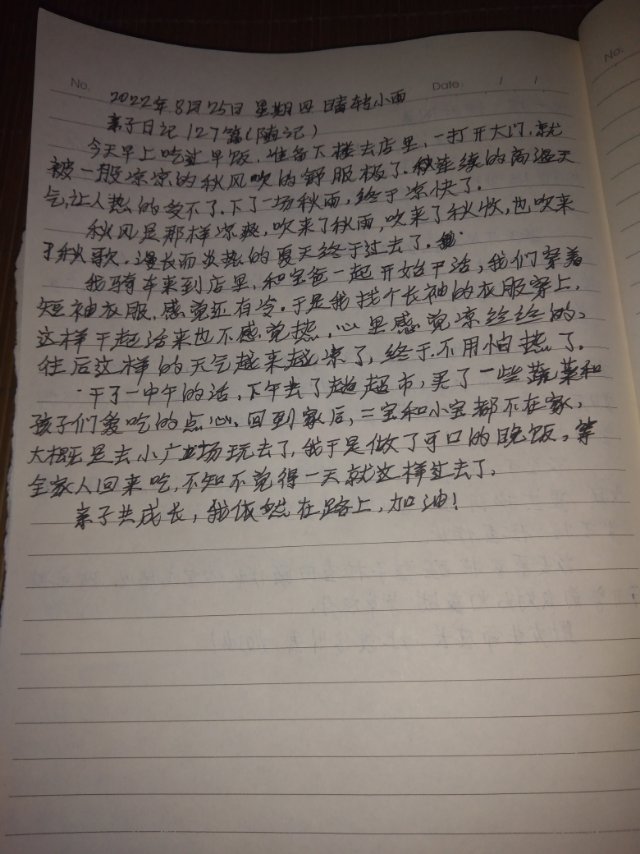 No.
Date / /
No.
2022年8月25日 星期四 晴转小雨
亲子日记127篇(随记)
今天早上吃过早饭,准备下楼去店里,一打开大门,就
被一股凉凉的秋风吹的舒服极了.连续的高温天
气,让人热的受不了.下了一场秋雨,终于凉快了.
秋风是那样凉爽,吹来了秋雨,吹来了秋收,也吹来
了秋歌.漫长而炎热的夏天终于过去了.
我骑车来到店里,和宝爸一起开始干活,我们穿着
短袖衣服,感觉还有冷.于是我找个长袖的衣服穿上,
这样干起活来也不感觉热,心里感觉凉丝丝的。
往后这样的天气越来越凉了,终于不用怕热了.
干了一中午的活,下午去了趟超市,买了一些蔬菜和
孩子们爱吃的点心.回到家后,二宝和小宝都不在家,
大概是去小广场玩去了,我于是做了可口的晚饭。等
全家人回来吃.不知不觉得一天就这样过去了.
亲子共成长,我依然在路上,加油!